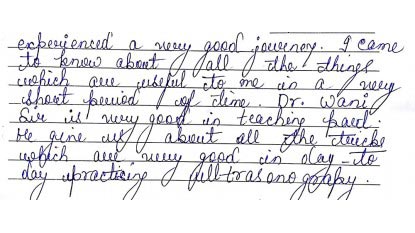 experienced a very good journey. I came
to know about all the things
which are useful to me in a very
short period of time. Dr. Wani
Sir is very good in teaching part.
He give us about all the tricks
which are very good in day-to
day practicing ultrasonography.